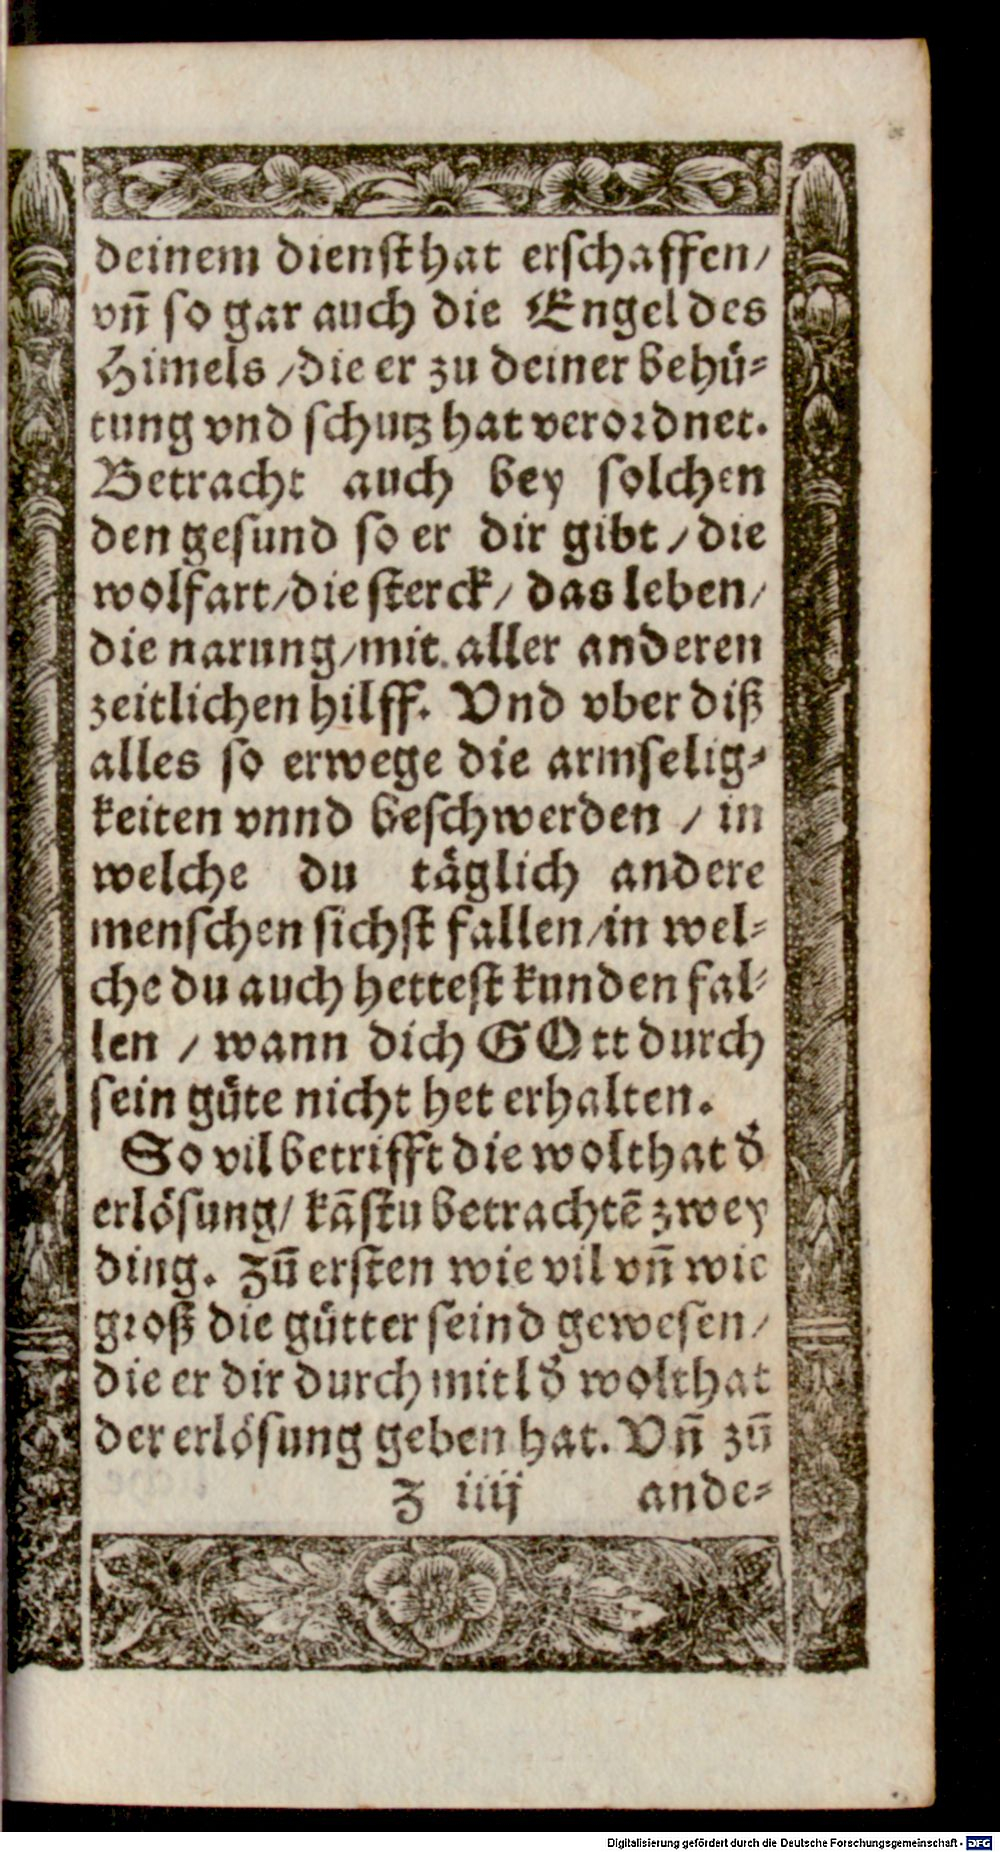 deinem dienst hat erschaffen/
vn̄ so gar auch die Engel des
Himels /die er zu deiner behuͤ⸗
tung vnd schutz hat verordnet.
Betracht auch bey solchen
den gesund so er dir gibt / die
wolfart/die sterck/ das leben/
die narung/mit aller anderen
zeitlichen hilff. Vnd vber diß
alles so erwege die armselig⸗
keiten vnnd beschwerden / in
welche du taͤglich andere
menschen sichst fallen/in wel⸗
che du auch hettest kunden fal⸗
len / wann dich GOtt durch
sein guͤte nicht het erhalten.
So vil betrifft die wolthat d̕
erloͤsung/ kāstu betrachtē zwey
ding. Zū ersten wie vil vn̄ wie
groß die guͤtter seind gewesen/
die er dir durch mitl d̕ wolthat
der erloͤsung geben hat. Vn̄ zū
Z iiij ande⸗
Digitalisierung gefördert durch die Deutsche Forschungsgemeinschaft - DFG